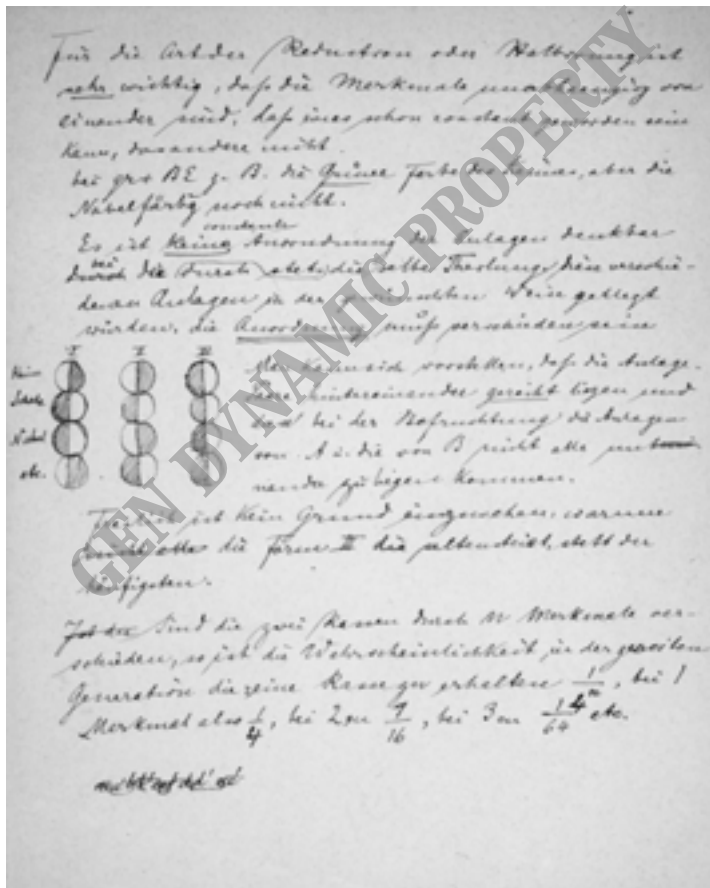 Für die Art der Reduction oder Halbierung ist
sehr wichtig, daß die Merkmale unabhängig von
einander sind, daß eines schon constant geworden sein
kann, das andere nicht.
bei gr × BE z. B. die Grüne Farbe des Keimes, aber die
Nabelfärbg noch nicht.
constante
Es ist keine Anordnung der Anlagen denkbar
bei
durch die durch stets dieselbe Theilung die verschie-
denen Anlagen in der gewünschten Weise gelegt
würden, die Anordnung muß verschieden sein
I I III
Keim
Schale
Nabel
etc.
Man kann sich vorstellen, daß die Anlage-
hintereinander gereiht liegen und
daß bei der Befruchtung die Anlagen
von A u. die von B nicht alle
zu liegen kommen.
Freilich ist kein Grund einzusehen, warum
die Form III die seltenste ist, statt der
häufigsten.
Sind die zwei Rassen durch n Merkmale ver-
schieden, so ist die Wahrscheinlichkeit, in der zweiten
Generation die reine Rasse zu erhalten 1/4ⁿ, bei 1
Merkmal also 1/4, bei 2en 1/16, bei 3en 1/64 etc.
GEN DYNAMIC PROPERTY